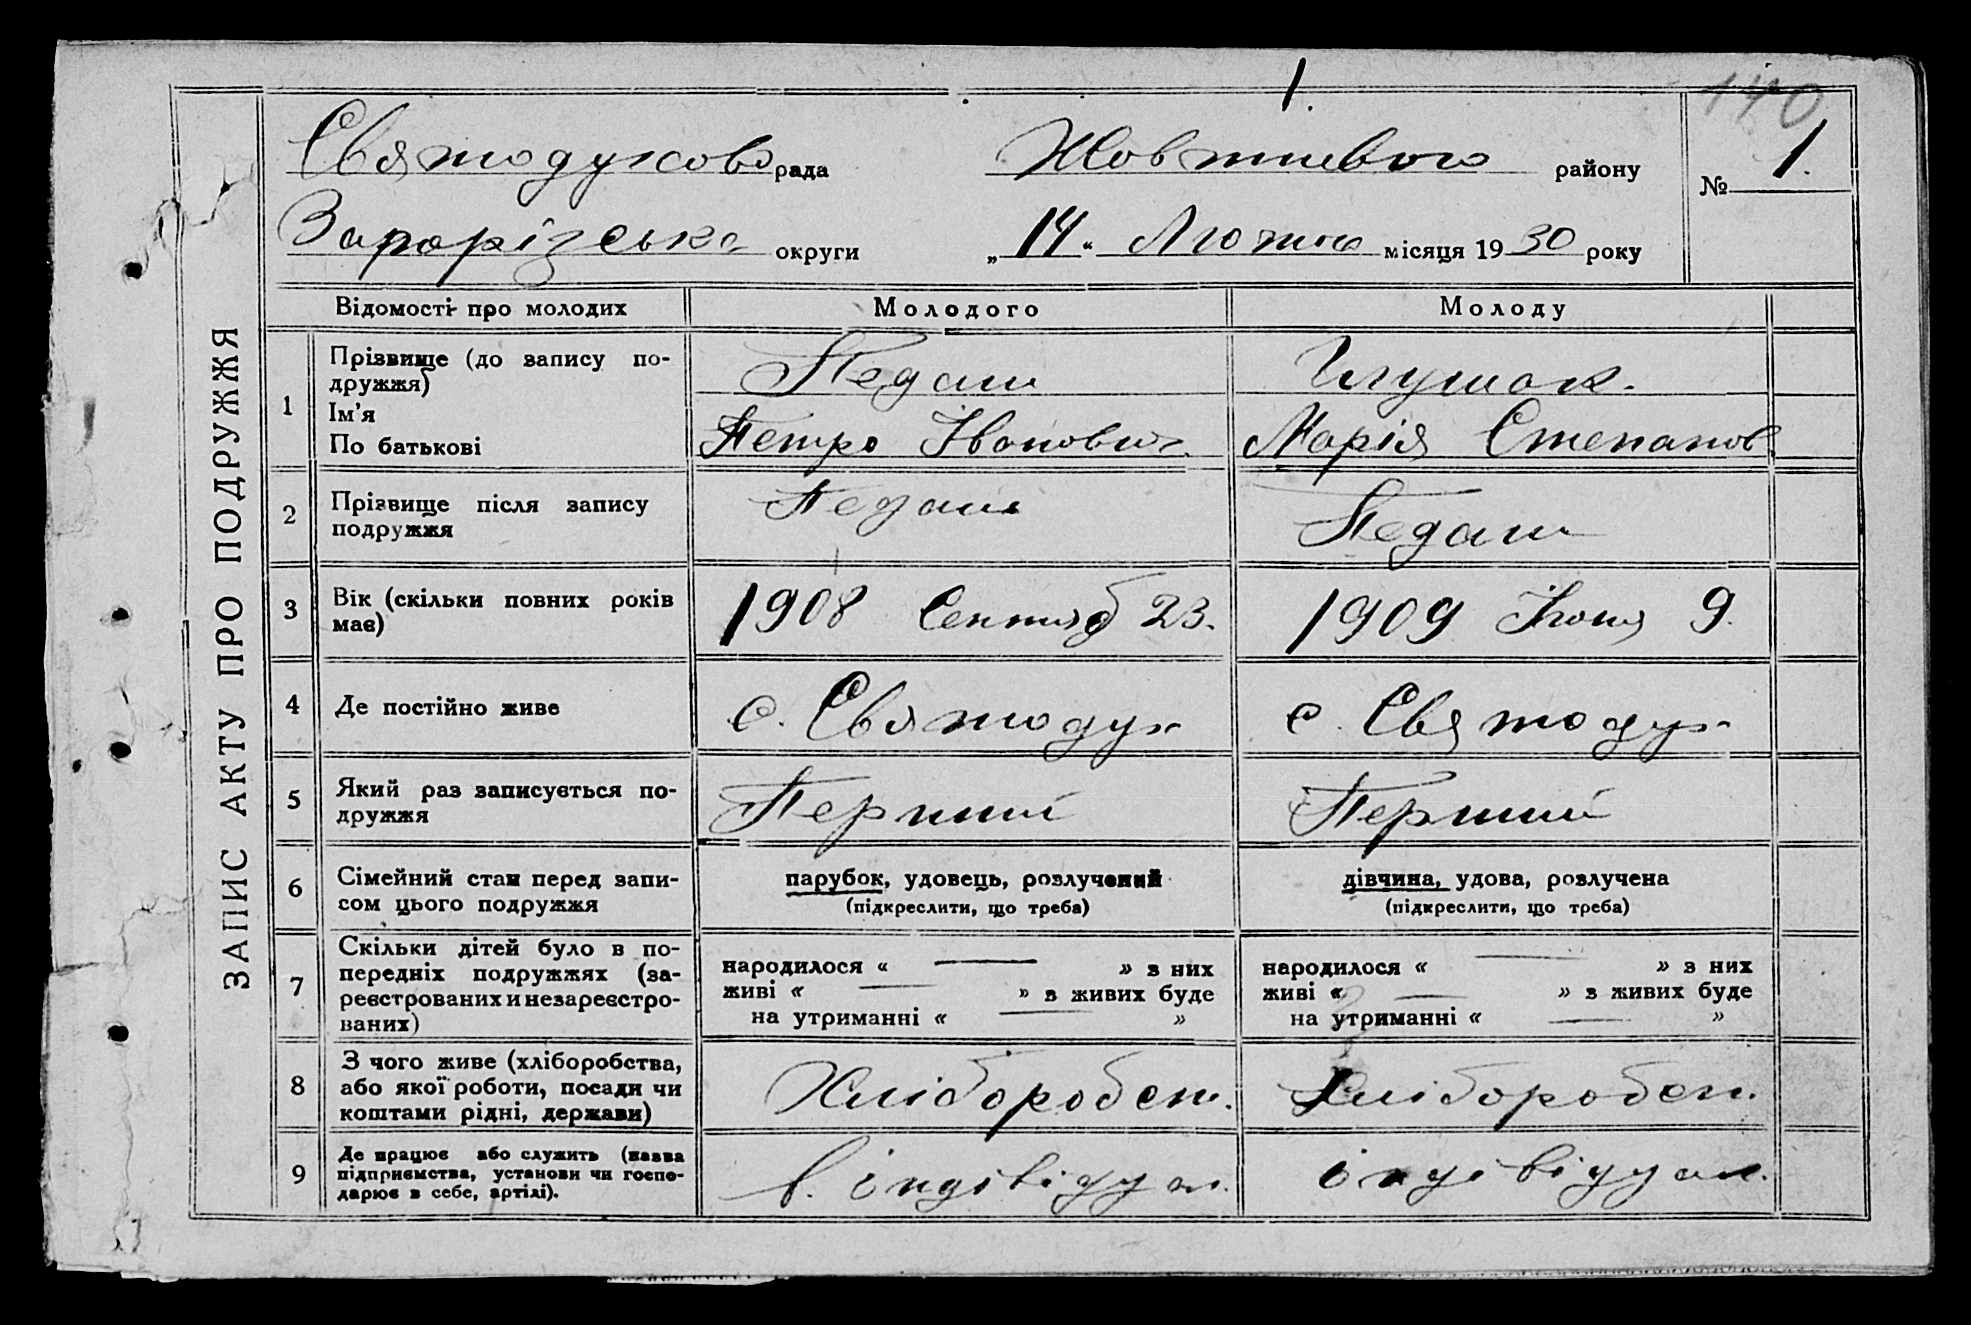 1.
140
Святодухова рада Жовтневого району № 1.
Запорізька округи „14“ Лютого місяця 1930 року
ЗАПИС АКТУ ПРО ПОДРУЖЖЯ
Відомості про молодих Молодого Молоду
1 Прізвище (до запису по-
дружжя) Педаш Глушак.
Ім'я
По батькові Петро Іванович Марія Степанов
2 Прізвище після запису
подружжя Педаш Педаш
3 Вік (скільки повних років
має) 1908 Сентяб 23. 1909 Июня 9.
4 Де постійно живе с. Святодух с. Святодух
5 Який раз записується по-
дружжя Перший Перший
6 Сімейний стан перед запи-
сом цього подружжя
парубок, удовець, розлучений
(підкреслити, що треба)
дівчина, удова, розлучена
(підкреслити, що треба)
7 Скільки дітей було в по-
передніх подружжях (за-
реєстрованих и незареєстро-
ваних)
народилося « — » з них
живі « — » з живих буде
на утриманні « — »
народилося « — » з них
живі « — » з живих буде
на утриманні « — »
8 З чого живе (хліборобства,
або якої роботи, посади чи
коштами рідні, держави)
Хлібороben. Хлібороben.
9 Де працює або служить (назва
підприємства, установи чи госпо-
дарює в себе, артілі).
в. індівідуал. індівідуал.